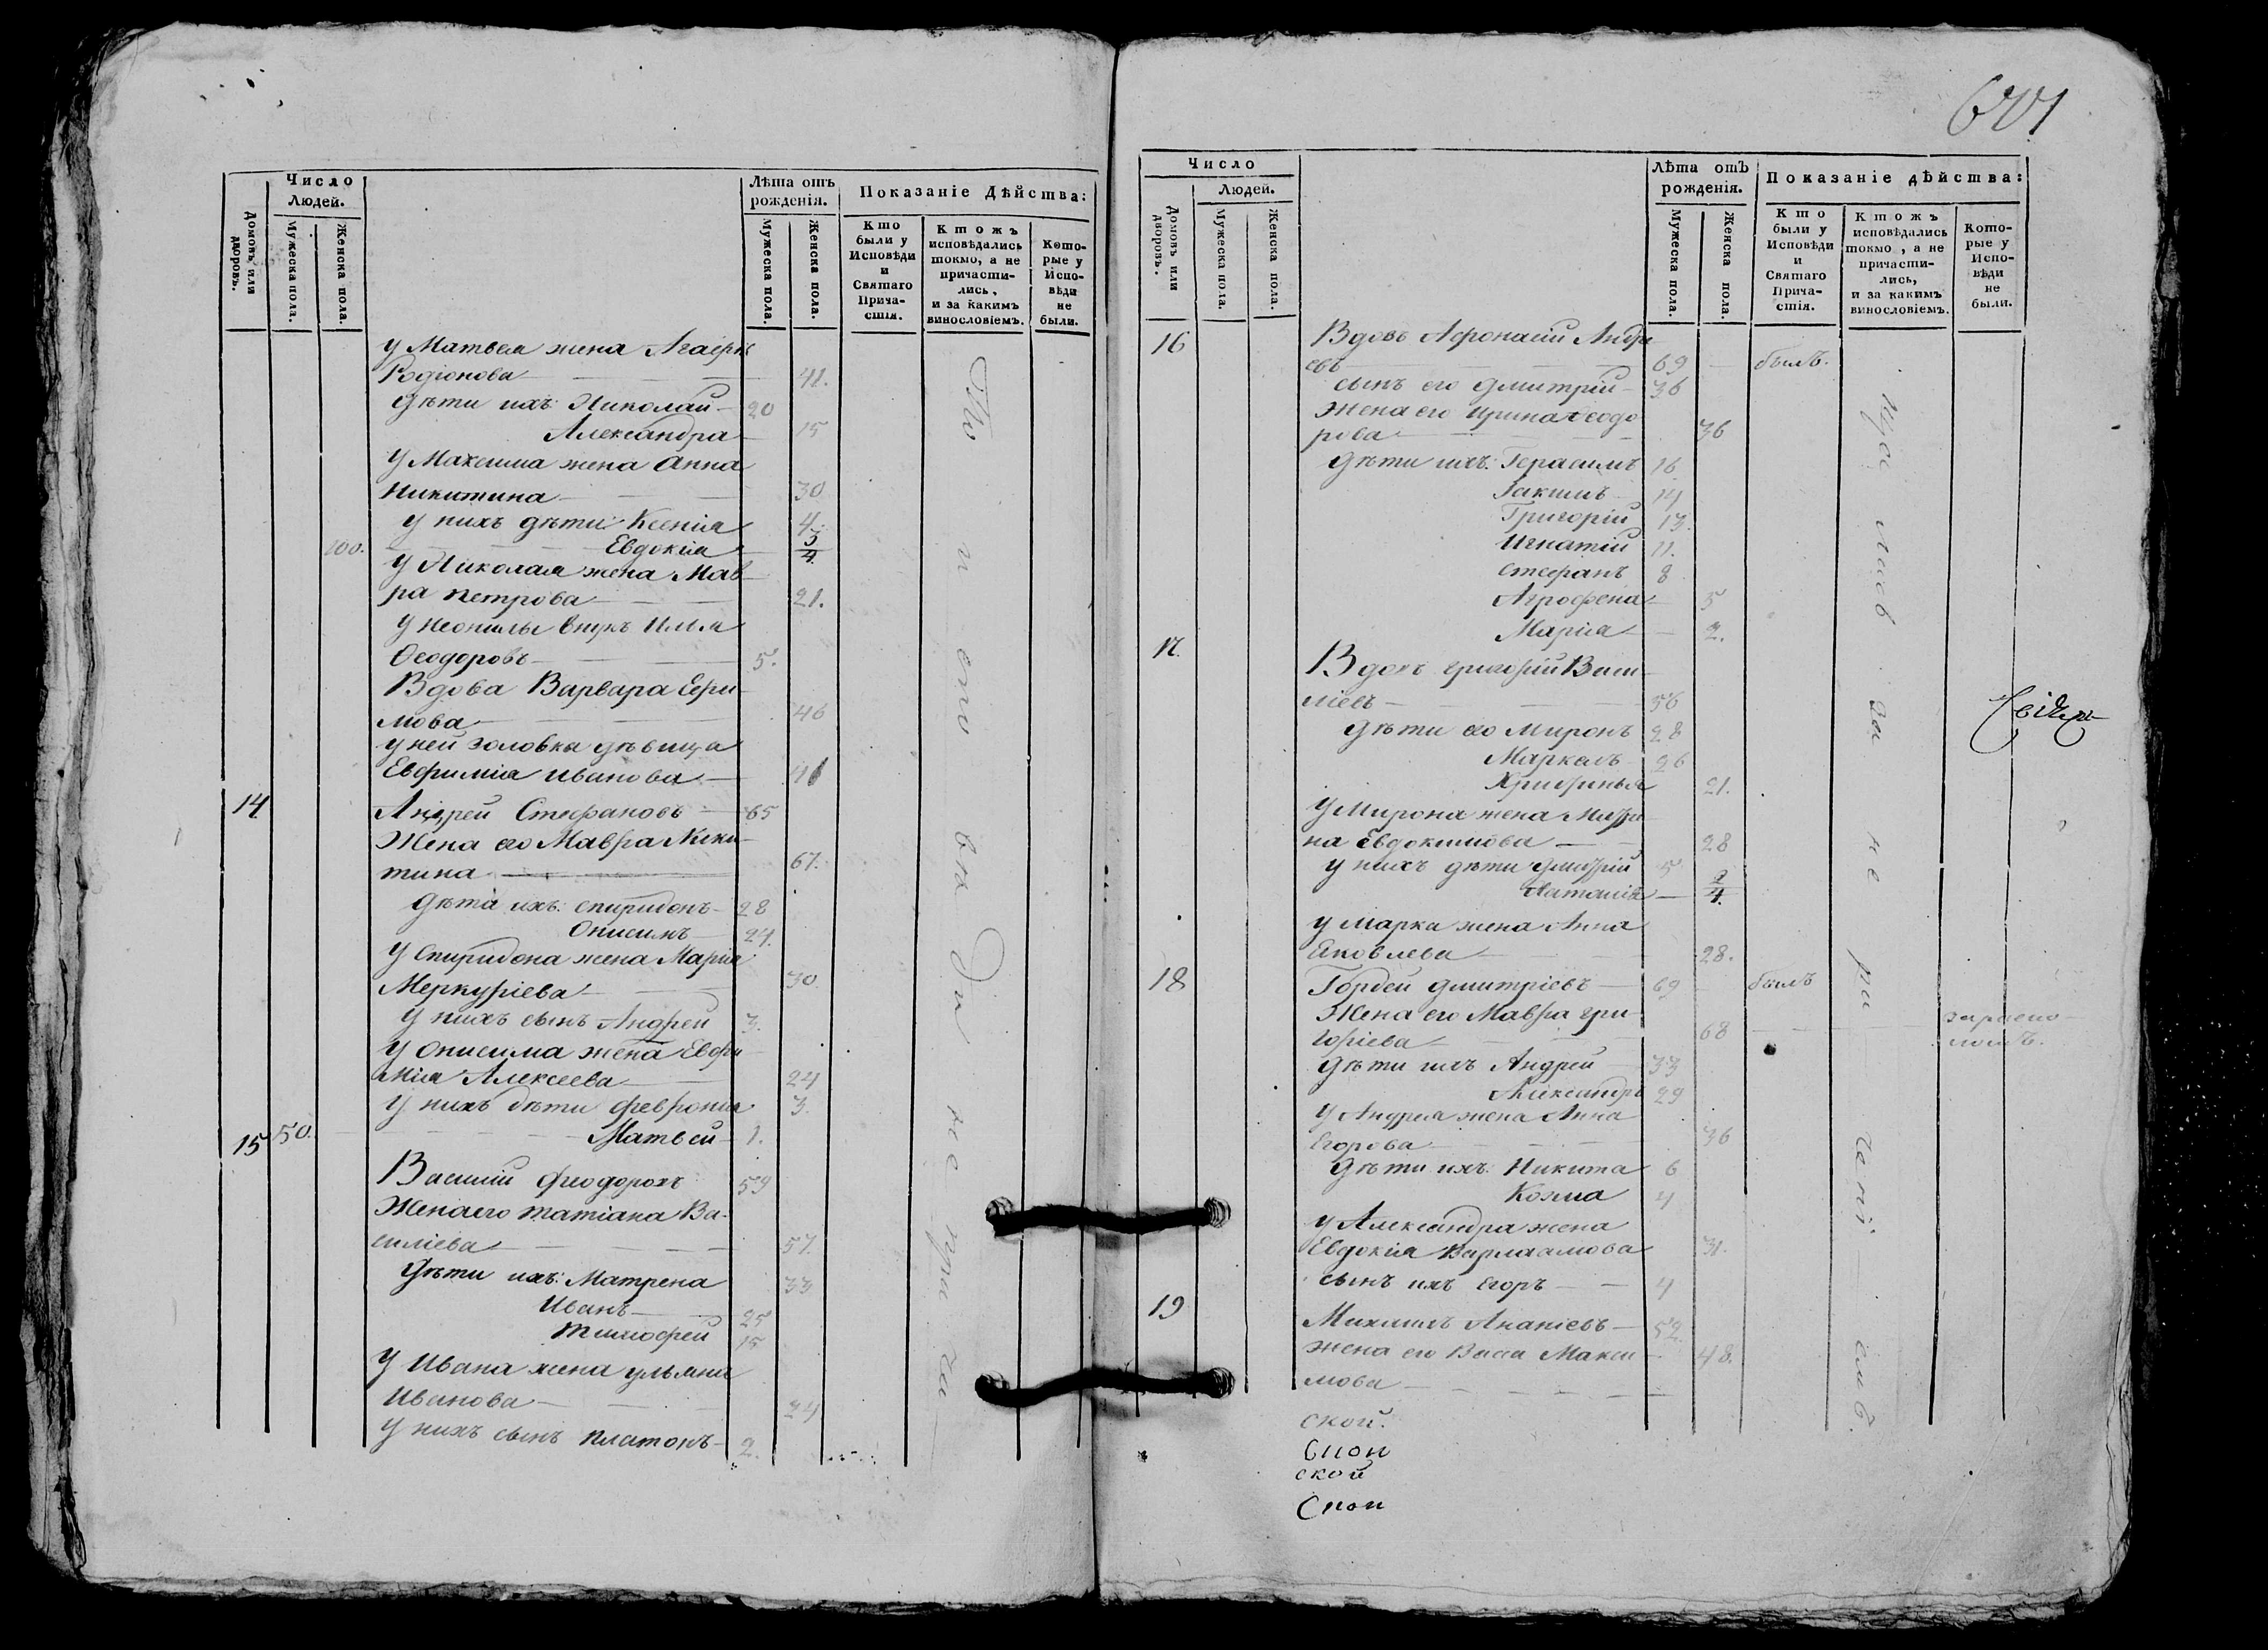 Число
Людей.
Домовъ или дворовъ.
Мужеска пола.
Женска пола.
Лѣта отъ рожденія.
Мужеска пола.
Женска пола.
Показаніе Дѣйства:
Кто были у Исповѣди и Святаго Причастія.
Ктожъ исповѣдались токмо, а не причастились, и за какимъ винословіемъ.
Которые у Исповѣди не были.
у Матвея жена Агафья
Родіонова 41.
дѣти ихъ: Николай 20
Александра 15
У Максима жена Анна
Никитина 30
у нихъ дѣти Ксенія 4
100. Евдокія 3/4
У Николая жена Мав-
ра Петрова 21.
У Неонилы внукъ Илья
Ѳеодоровъ 5.
Вдова Варвара Ефи-
мова 46
у ней золовка дѣвица
Евфимія Иванова 41
14 Андрей Стефановъ 65
Жена его Мавра Ники-
тина 67.
дѣти ихъ: Спиридонъ 28
Онисимъ 24.
У Спиридона жена Марія
Меркуріева 30
У нихъ сынъ Андрей 3.
У Онисима жена Евфи-
мія Алексеева 24
У нихъ дѣти Феврония 3.
15 50. Матвей 1.
Василій Феодоровъ 59
Жена его Татіана Ва-
силіева 57.
Дѣти ихъ: Матрена 33
Иванъ 25
Тимофей 15
У Ивана жена Ульяна
Иванова 24
У нихъ сынъ Платонъ 2.
677
Число
Людей.
Домовъ или дворовъ.
Мужеска пола.
Женска пола.
Лѣта отЪ рожденія.
Мужеска пола.
Женска пола.
Показаніе дѣйства:
Кто были у Исповѣди и Святаго Причастія.
Ктожъ исповѣдались токмо, а не причастились, и за какимъ винословіемъ.
Которые у Исповѣди не были.
16 Вдовъ Афонасій Андре
евъ 69 былъ.
сынъ его Дмитрій 36
Жена его Ирина Ѳеодо
рова 36
Дѣти ихъ: Герасимъ 16
Іакимъ 14
Григорій 13.
Игнатій 11.
Стефанъ 8
Агрофена 5
Марія 2.
17. Вдовъ Григорій Васи-
ліевъ 56
Дѣти его Миронъ 28
Маркелъ 26
21.
У Мирона жена
на Евдокимова 28
у нихъ дѣти Дмитрій 5
Наталія 2/4
У Марка жена Анна
Яковлева 28.
18 Гордей Дмитріевъ 69 былъ
Жена его Мавра Гри-
горіева 68
Дѣти ихъ Андрей 33
Александръ 29
У Андрея жена Анна
Егорова 36
Дѣти ихъ: Никита 6
Козма 4
У Александра жена
Евдокія Варлаамова 31.
сынъ ихъ Егоръ 4
19 Михаилъ Ананіевъ 52
Жена его Васса Макси 48.
мова
ской.
ской